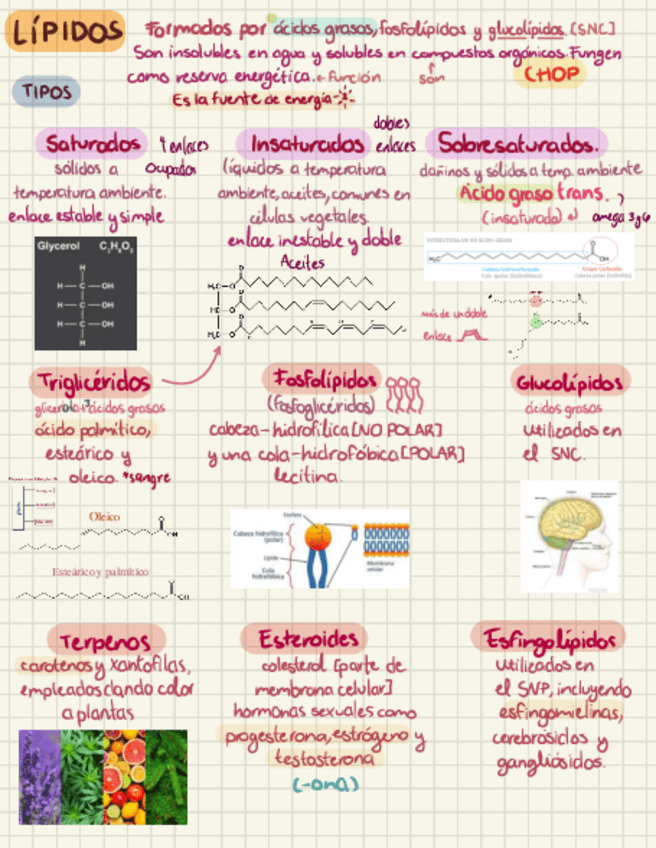 LÍPIDOS
Formados por ácidos grasos, fosfolípidos y glucolípidos. [SNC]
Son insolubles en agua y solubles en compuestos orgánicos. Fungen
como reserva energética. ← función
son
CHOP
Es la fuente de energía
TIPOS
Saturados
enlaces
Ocupados
sólidos a
temperatura ambiente.
enlace estable y simple
Insaturados
dobles
enlaces
líquidos a temperatura
ambiente, aceites, comunes en
células vegetales.
enlace inestable y doble
Aceites
Sobresaturados.
dañinos y sólidos a temp. ambiente
Ácido graso trans.
(insaturado)
omega 3 y 6
Glycerol C₃H₈O₃
H
H C OH
H C OH
H C OH
H
ESTRUCTURA DE UN ÁCIDO GRASO
H₃C
O
OH
Cadena hidrocarbonada
Grupo Carboxilo
Cola apolar (hidrófoba)
Cabeza polar (hidrófila)
más de un doble
enlace
Triglicéridos
glicerol + 3 ácidos grasos
ácido palmítico,
esteárico y
oleico. *sangre
Oleico
Esteárico y palmítico
Fosfolípidos
(fosfoglicéridos)
cabeza-hidrofílica [NO POLAR]
y una cola-hidrofóbica [POLAR]
lecitina.
Fosfato
Cabeza hidrofílica
(polar)
Lípido
Cola
hidrofóbica
Membrana
celular
Glucolípidos
ácidos grasos
utilizados en
el SNC.
Terpenos
carotenos y xantofilas,
empleados dando color
a plantas
Esteroides
colesterol [parte de
membrana celular]
hormonas sexuales como
progesterona, estrógeno y
testosterona
(-ona)
Esfingolípidos
utilizados en
el SNP, incluyendo
esfingomielinas,
cerebrósidos y
gangliósidos.